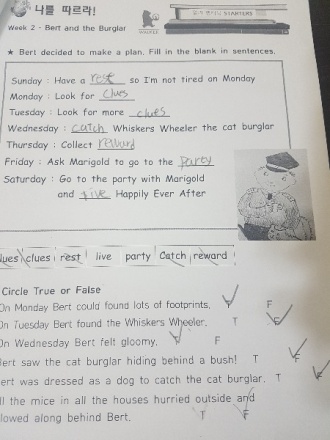 나를 따르라!
STARTERS
Week 2 - Bert and the Burglar
★ Bert decided to make a plan. Fill in the blank in sentences.
Sunday : Have a rest so I'm not tired on Monday
Monday : Look for clues
Tuesday : Look for more clues
Wednesday : catch Whiskers Wheeler the cat burglar
Thursday : Collect reward
Friday : Ask Marigold to go to the party
Saturday : Go to the party with Marigold
and live Happily Ever After
clues clues rest live party Catch reward
Circle True or False
On Monday Bert could found lots of footprints. T F
On Tuesday Bert found the Whiskers Wheeler. T F
On Wednesday Bert felt gloomy. T F
Bert saw the cat burglar hiding behind a bush! T F
Bert was dressed as a dog to catch the cat burglar. T F
All the mice in all the houses hurried outside and
followed along behind Bert. T F